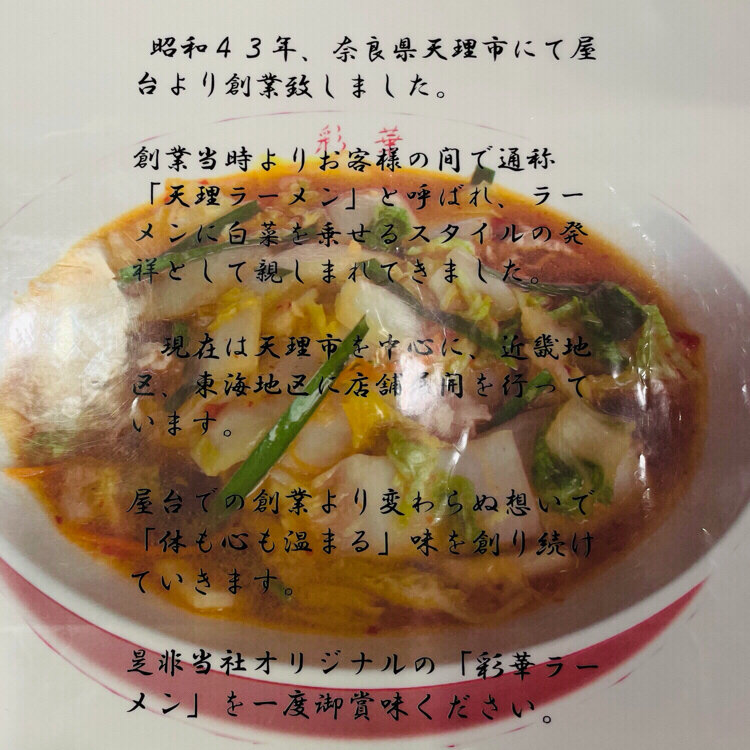 昭和４３年、奈良県天理市にて屋
台より創業致しました。
彩華
創業当時よりお客様の間で通称
「天理ラーメン」と呼ばれ、ラー
メンに白菜を乗せるスタイルの発
祥として親しまれてきました。
現在は天理市を中心に、近畿地
区、東海地区に店舗展開を行って
います。
屋台での創業より変わらぬ想いで
「体も心も温まる」味を創り続け
ていきます。
是非当社オリジナルの「彩華ラー
メン」を一度御賞味ください。